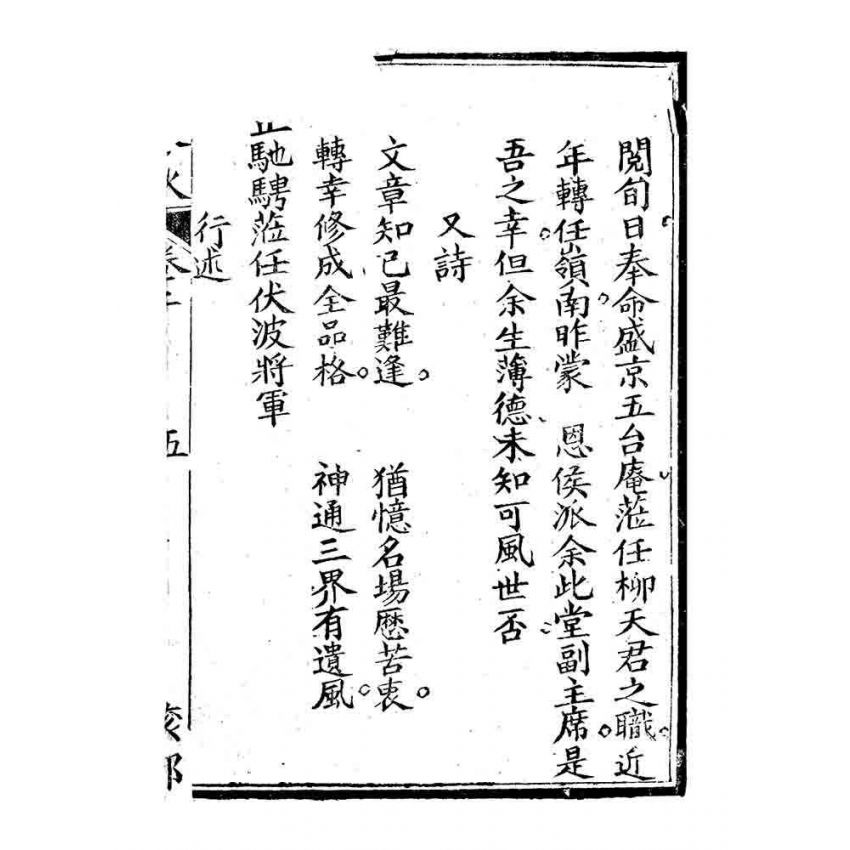 閱旬日奉命盛京五台庵蒞任柳天君之職。近
年轉任嶺南。昨蒙 恩侯派余此堂副主席。是
吾之幸但余生薄德、未知可風世否
又詩
文章知己最難逢。 猶憶名場歷苦衷。
轉幸修成全品格。 神通三界有遺風
馳騁蒞任伏波將軍
行述
五